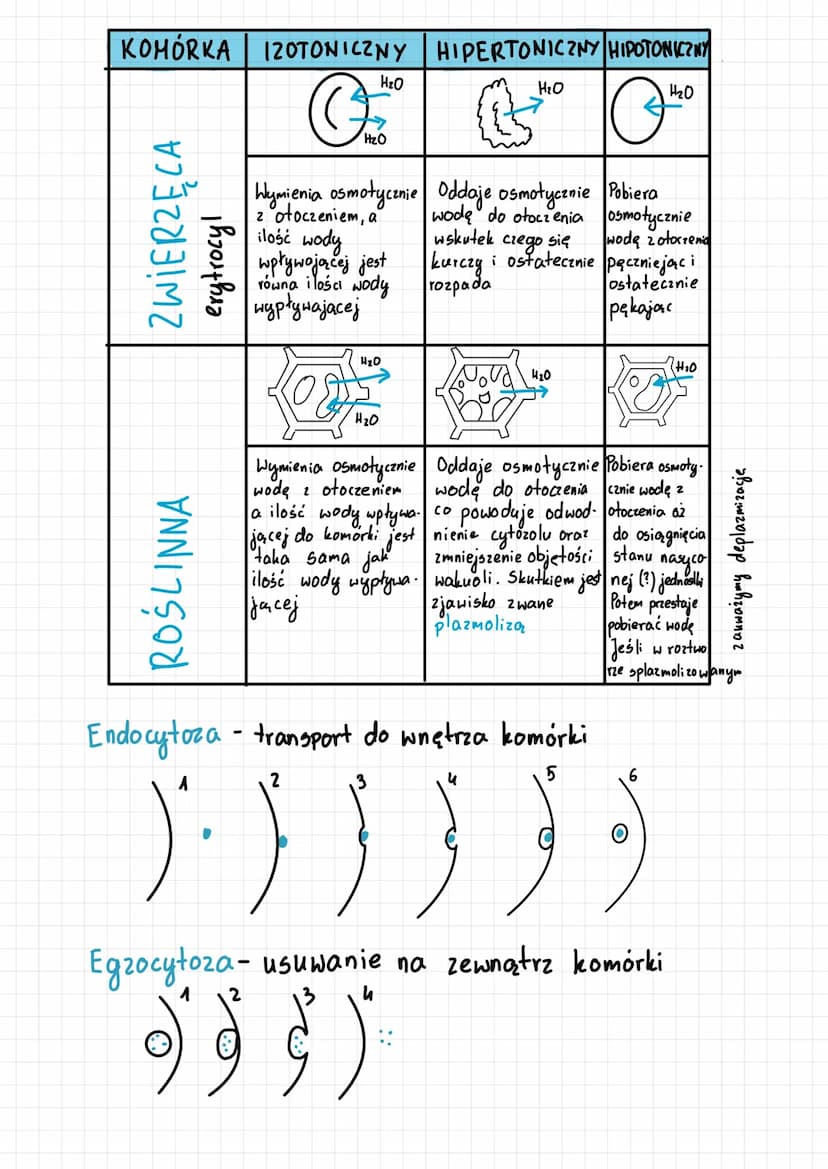 KOMÓRKA
IZOTONICZNY
HIPERTONICZNY
HIPOTONICZNY
ZWIERZĘCA
erytrocyl
H2O
H2O
H2O
H2O
Wymienia osmotycznie
z otoczeniem, a
ilość wody
wpływojącej jest
równa ilości wody
wypływającej
Oddaje osmotycznie
wodę do otoczenia
wskutek czego się
kurczy i ostatecznie
rozpada
Pobiera
osmotycznie
wodę z otoczenia
pęczniejąc i
ostatecznie
pękając
ROŚLINNA
H2O
H2O
H2O
H2O
Wymienia osmotycznie
wodę z otoczeniem
a ilość wody wpływa-
jącej do komórki jest
taka sama jak
ilość wody wypływa-
jącej
Oddaje osmotycznie
wodę do otoczenia
co powoduje odwod-
nienie cytozolu oraz
zmniejszenie objętości
wakuoli. Skutkiem jest
zjawisko zwane
plazmolizą
Pobiera osmoty-
cznie wodę z
otoczenia aż
do osiągnięcia
stanu nasyco-
nej (?) jednostki
Potem przestaje
pobierać wodę
Jeśli w roztwo
rze splazmolizowanym
zauważymy deplazmizację
Endocytoza - transport do wnętrza komórki
1 2 3 4 5 6
Egzocytoza - usuwanie na zewnątrz komórki
1 2 3 4